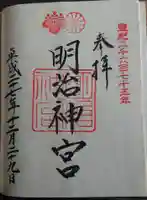 皇紀二千六百七十五年
奉拝
明治神宮
平成二十七年十二月二十九日